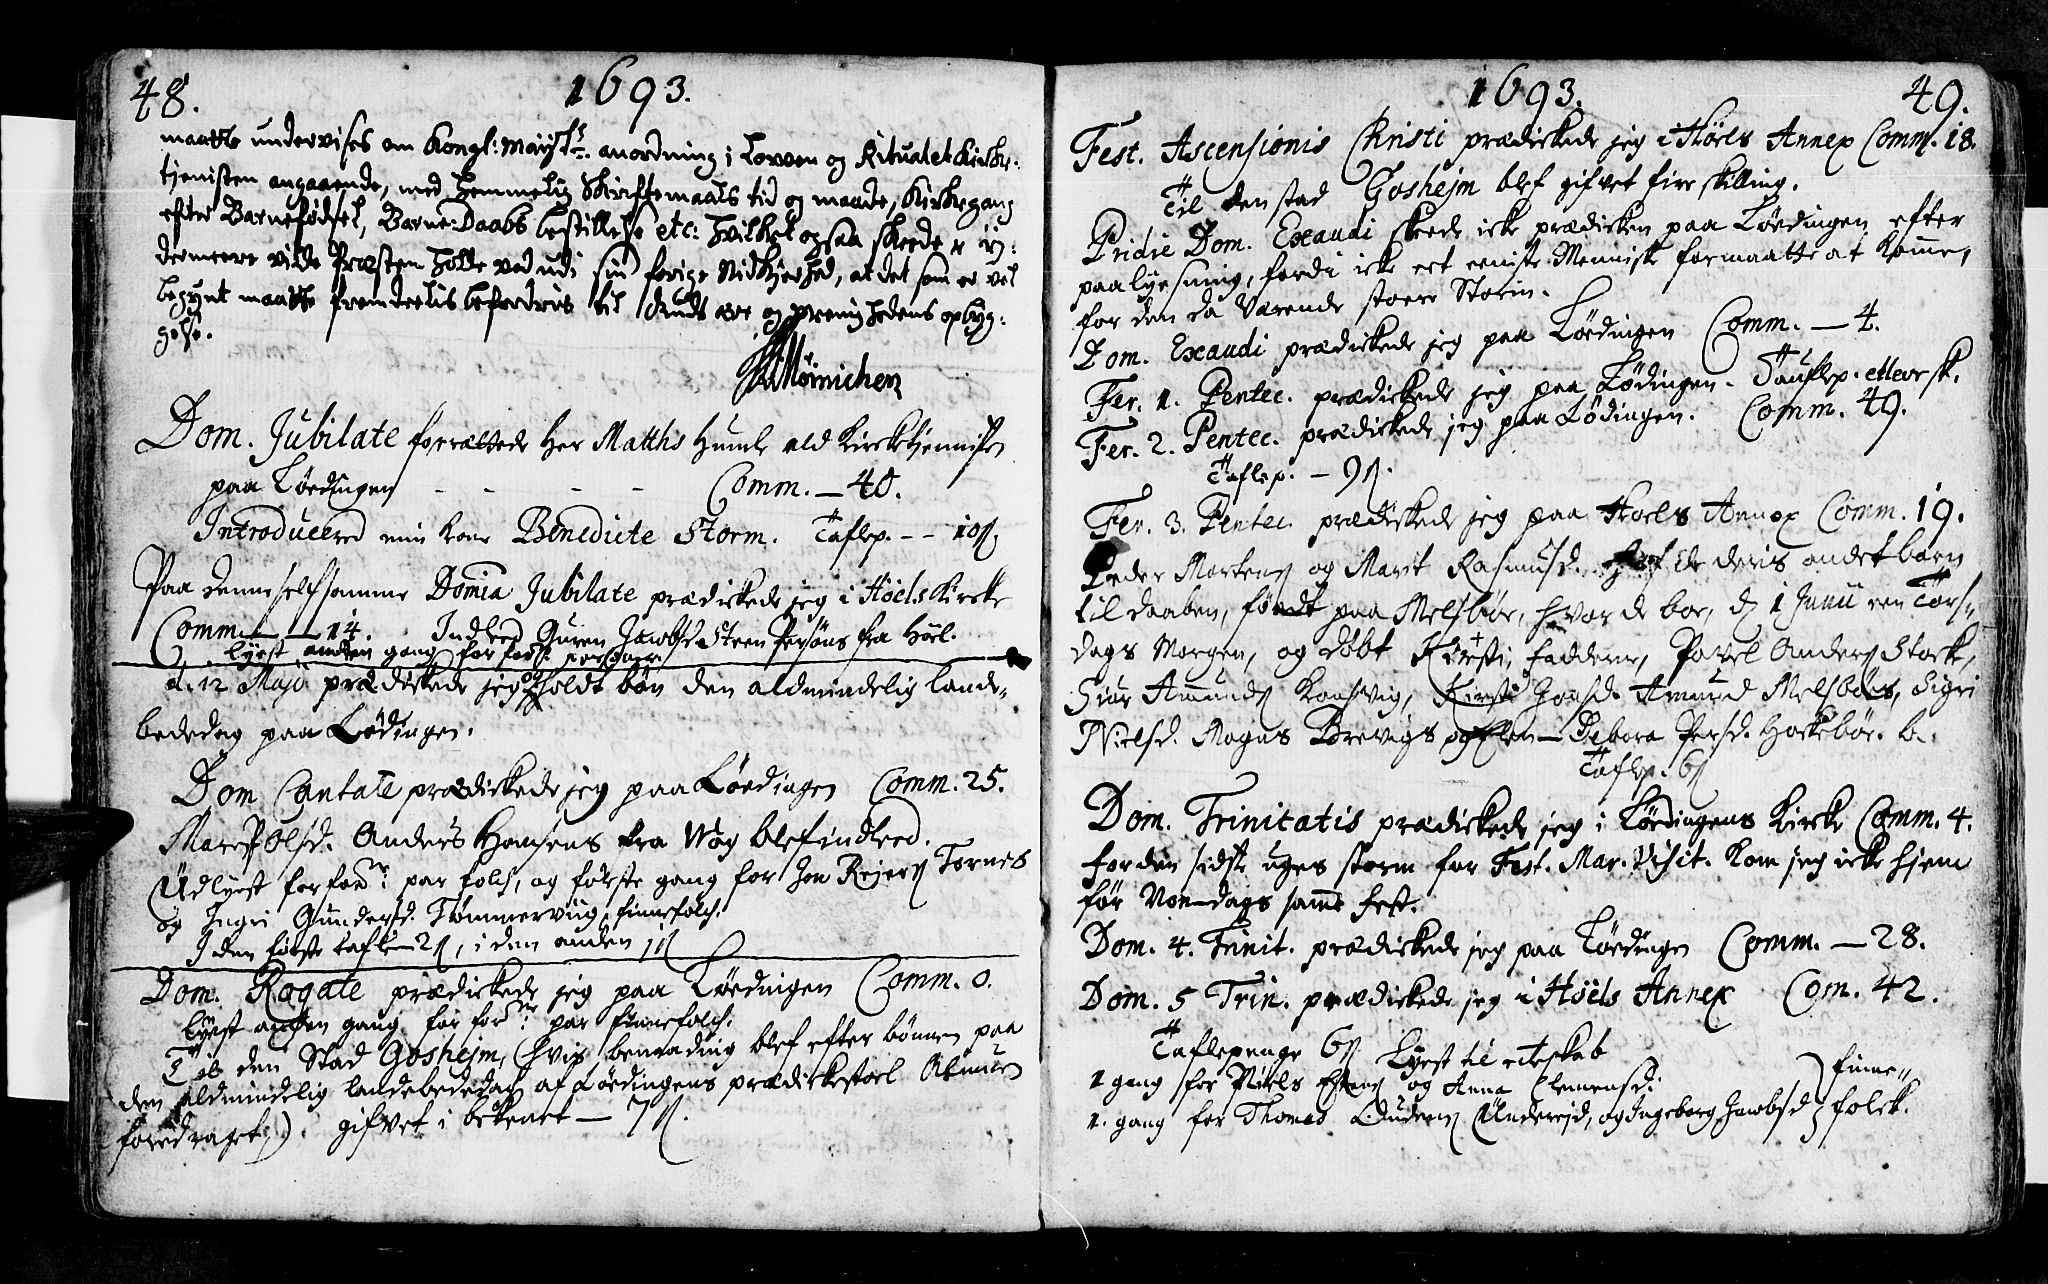 48.
1693.
maatte undervises om Kongl: Maiestts. anordning i Loven og Ritualet Kirke-
tjenisten angaaende, med hemmelig Skriftemaals tid og maade, Kirkegang
efter Barnefødsel, Barne-Daabs bestillelse etc: hvilket ogsaa skeede
vilde Præsten holde ved udi sin forige Nidkierhed, at det som er vel
begynt maatte fremdeelis befordris til Guds ære og menighedens opbyg-
gelse.
Dom. Jubilate forrættede Her Matths Hund ald Kircketjennisten
paa Løedingen - - - - Comm. — 40.
Introduceered min kone Benedicte Storm. Taflep. - - 10 ß.
Paa denne selfsamme Domīa Jubilate prædickede jeg i Høels Kircke
Comm. — 14. Indleed Guren Jacobsd. Steen Persøns fra Høel.
lyest anden gang for
d. 12 Maji prædickede jeg og holdt bøn den almindelig lande-
bededag paa Lødingen.
Dom Cantate prædickede jeg paa Løedingen Comm. 25.
Maret Olsd. Anders Hansens fra Wog blef indleed.
Udlyest for fornde: par folch, og første gang for Jon Rejers Tornes
og Ingri Gundersd. Tømmervug, finnefolch.
I den første tafl — 2 ß, i den anden j ß
Dom. Rogate prædickede jeg paa Løedingen Comm. 0.
lyest anden gang for fornde: par finnefolch.
Til den Stad Goshejm, (hvis benaading blef efter bønnen paa
den aldmindelig landebededag af Løedingens prædickestoel
foredraget,) gifvet i beckenet — 7 ß.
1693.
49.
Fest. Ascensionis Christi prædickede jeg i Høels Annex Comm. 18.
Til den stad Goshejm blef gifvet fire skilling.
Pridie Dom. Exaudi skeede icke prædicken paa Løedingen efter
paalyesning, fordi icke eet eeniste Menniske formaatte at komme,
for den da værende stoere Storm.
Dom. Exaudi prædickede jeg paa Løedingen Comm. — 4.
Fer. 1. Pentec. prædickede jeg paa Lødingen.
Fer. 2. Pentec. prædickede jeg paa Lødingen. Comm. 49.
Taflep. — 9 ß.
Fer. 3. Pentec. prædickede jeg paa Hoels Annex Comm. 19.
Peder Mortens og Marit Rasmusd. de deris andet barn
til daaben, født paa Melsbøe, hvor de boe, d. 1 Junii een Tors-
dags Morgen, og døbt Kirsti, faddere, Povel Anders Stocke,
Siur Amunds Kaasvig, Kirsti Joesd. Amund Melsbøes, Sigri
Nielsd. Mogns Brevigs og Elen Debora Persd. Hockebøe. b.
Taflep. 6 ß
Dom. Trinitatis prædickede jeg i Lødingens Kircke Comm. 4.
for den sidste uges storm for Fest. Mar. Visit. kom jeg icke hjem
før Vonsdags samme Fest.
Dom. 4. Trinit. prædickede jeg paa Løedingen Comm. — 28.
Dom. 5 Trin. prædickede jeg i Høels Annex Com. 42.
Taflepenge 6 ß. Lyest til ecteskab
1 gang for Niels og Anna Clemensd: finne-
1. gang for Thomes og Ingeborg Jacobsd folck.